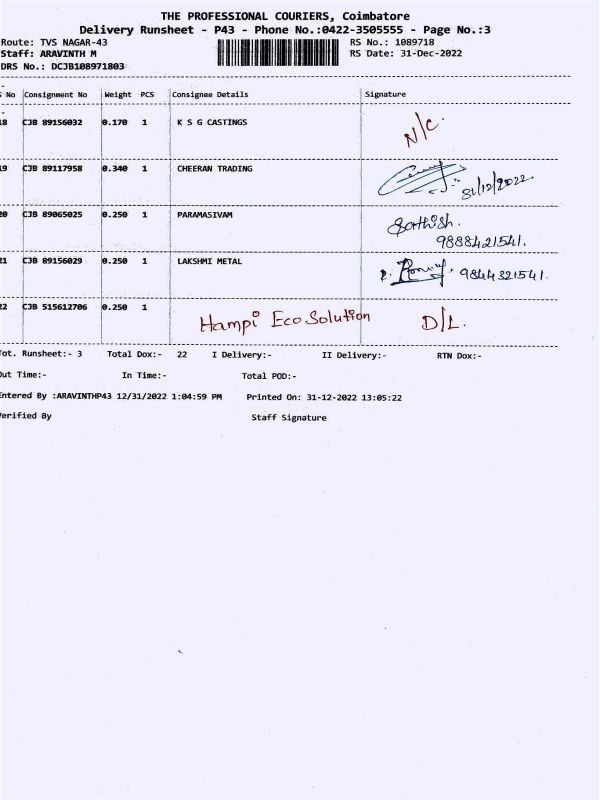 THE PROFESSIONAL COURIERS, Coimbatore
Delivery Runsheet - P43 - Phone No.:0422-3505555 - Page No.:3
Route: TVS NAGAR-43 RS No.: 1089718
Staff: ARAVINTH M RS Date: 31-Dec-2022
DRS No.: DCJB108971803
S No Consignment No Weight PCS Consignee Details Signature
18 CJB 89156032 0.170 1 K S G CASTINGS N/C.
19 CJB 89117958 0.340 1 CHEERAN TRADING 31/12/2022.
20 CJB 89065025 0.250 1 PARAMASIVAM Sathish.
9888421541.
21 CJB 89156029 0.250 1 LAKSHMI METAL 9844321541.
22 CJB 515612706 0.250 1 Hampi Eco Solution D/L.
Tot. Runsheet:- 3 Total Dox:- 22 I Delivery:- II Delivery:- RTN Dox:-
Out Time:- In Time:- Total POD:-
Entered By :ARAVINTHP43 12/31/2022 1:04:59 PM Printed On: 31-12-2022 13:05:22
Verified By Staff Signature